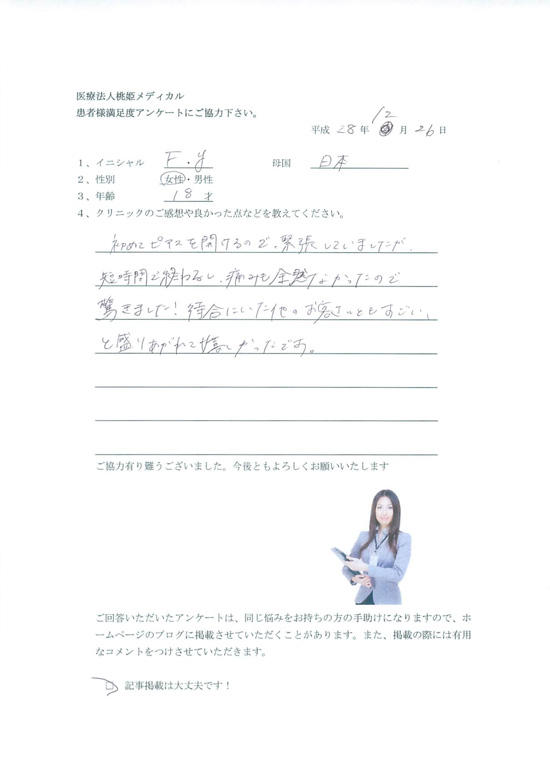 医療法人桃姫メディカル
患者様満足度アンケートにご協力下さい。
平成 28 年 12 月 26 日
1、イニシャル F・y 母国 日本
2、性別 女性・男性
3、年齢 18才
4、クリニックのご感想や良かった点などを教えてください。
初めてピアスを開けるので、緊張していましたが、
短時間で終わるし、痛みも全然なかったので
驚きました！待合にいた他のお客さんともすごい、
と盛りあがれて楽しかったです。
ご協力有り難うございました。今後ともよろしくお願いいたします
ご回答いただいたアンケートは、同じ悩みをお持ちの方の手助けになりますので、ホ
ームページのブログに掲載させていただくことがあります。また、掲載の際には有用
なコメントをつけさせていただきます。
□ 記事掲載は大丈夫です！